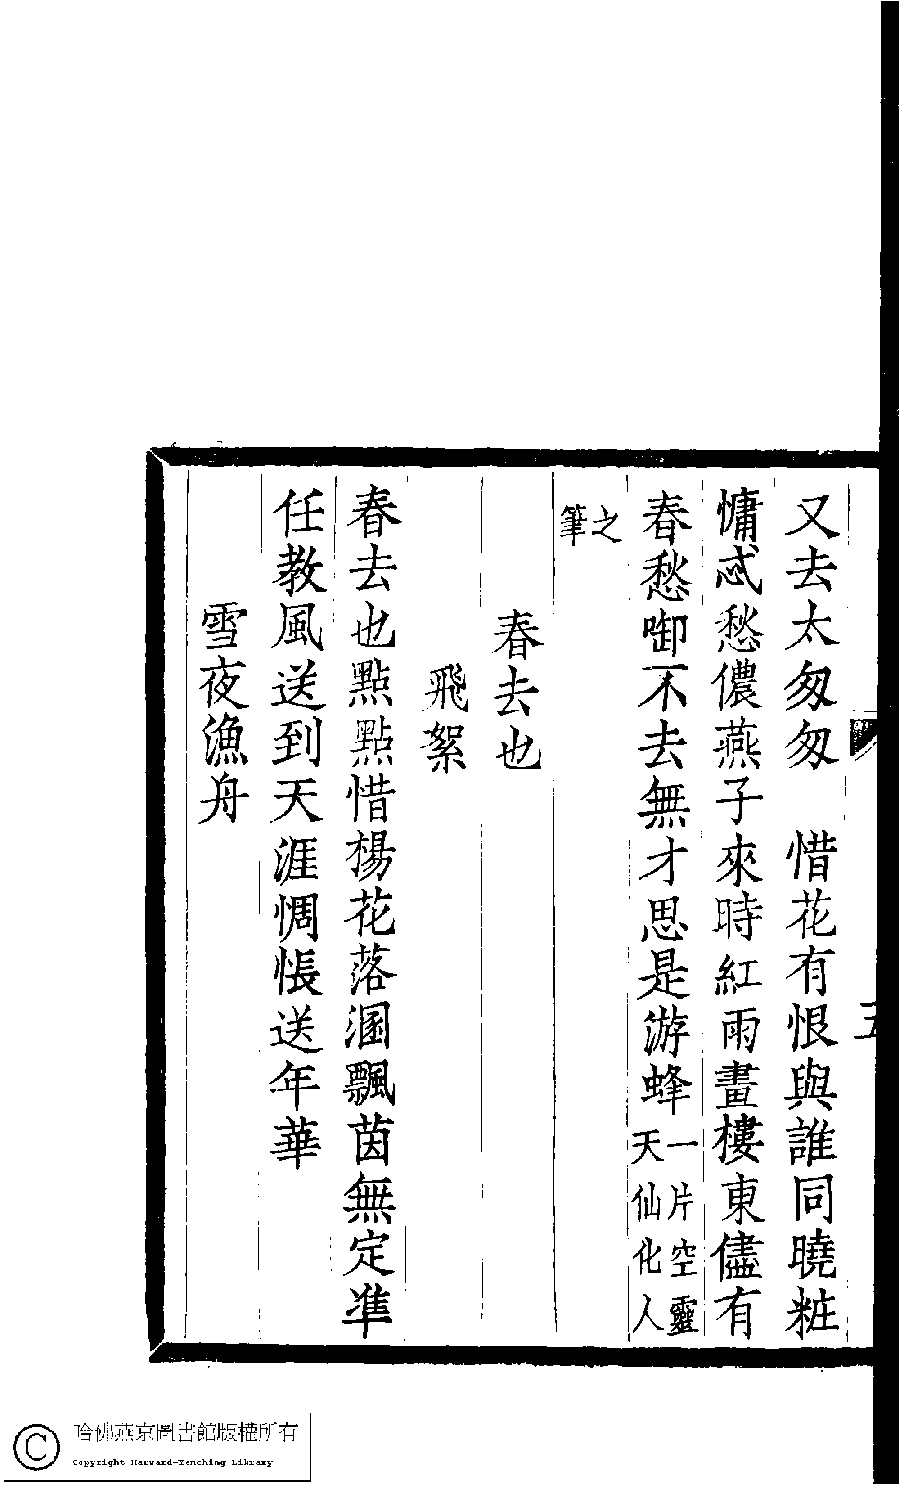 又去太匆匆　惜花有恨與誰同曉粧
慵忒愁儂燕子來時紅雨畫樓東儘有
春愁啣不去無才思是游蜂一片空靈天仙化人
之筆
春去也
飛絮
春去也點點惜楊花落溷飄茵無定準
任教風送到天涯惆悵送年華
雪夜漁舟
五
哈佛燕京圖書館版權所有
Copyright Harvard-Yenching Library